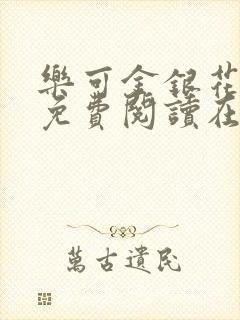 樂可金銀花
免費閱讀在
萬古遺民